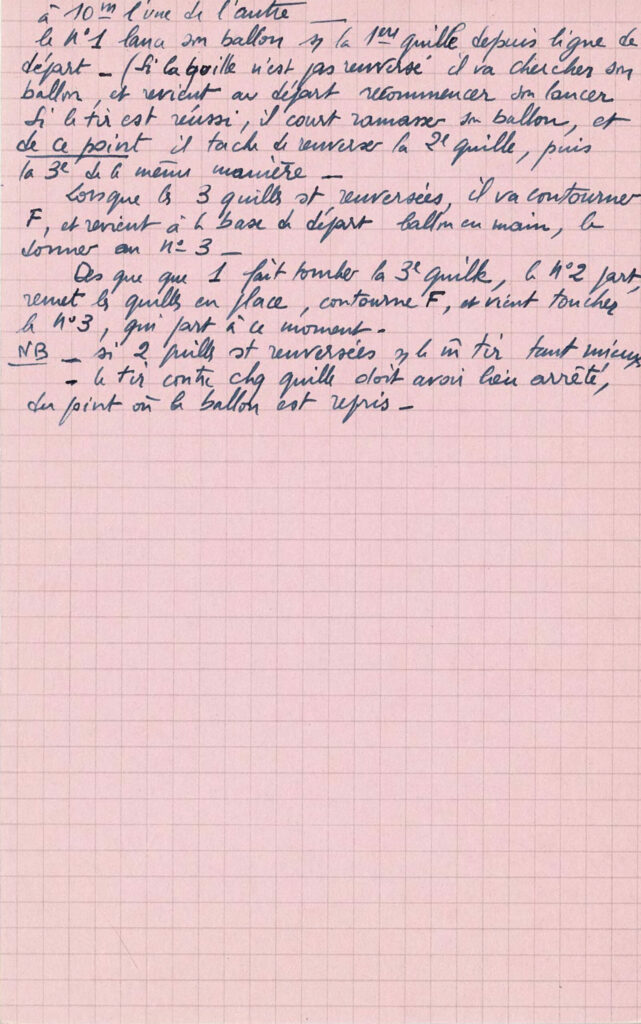 à 10m l'une de l'autre —
le n°1 lance son ballon sr la 1ère quille depuis ligne de
départ – (Si la quille n'est pas renversé il va chercher son
ballon, et revient au départ recommencer son lancer
Si le tir est réussi, il court ramasser sn ballon, et
de ce point il tache de renverser la 2e quille, puis
la 3e de la même manière –
Lorsque les 3 quilles st renversées, il va contourner
F, et revient à la base de départ ballon en main, le
donner au n° 3 –
Dès que que 1 fait tomber la 3e quille, le n°2 part,
remet les quilles en place, contourne F, et vient toucher
le n°3, qui part à ce moment.
NB – si 2 quilles st renversées sr le m tir tant mieux
- le tir contre chq quille doit avoir lieu arrêté,
du point où le ballon est repris –